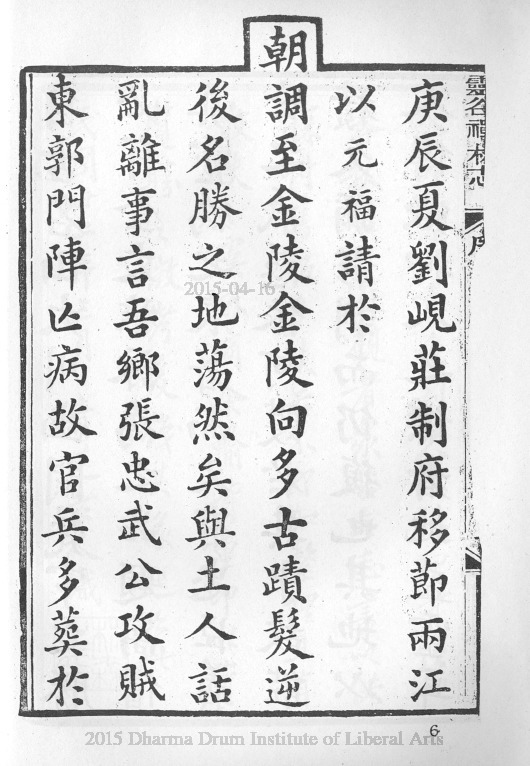 靈谷禪林志
序
庚辰夏劉峴莊制府移節兩江
以元福請於
朝調至金陵金陵向多古蹟髮逆
後名勝之地蕩然矣與土人話
亂離事言吾鄉張忠武公攻賊
東郭門陣亾病故官兵多葬於
6
2015-04-16
2015 Dharma Drum Institute of Liberal Arts